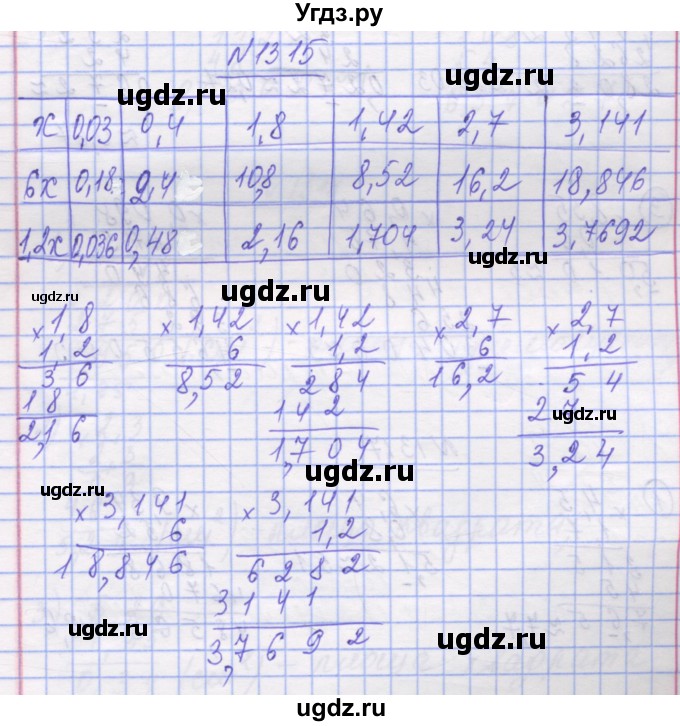 Угдз.ру
N1315
ugdz.ru ugdz.ru
x 0,03 0,4 1,8 1,42 2,7 3,141
6x 0,18 2,4 10,8 8,52 16,2 18,846
1,2x 0,036 0,48 2,16 1,704 3,24 3,7692
ugdz.ru
ugdz.ru ugdz.ru
× 1,8 × 1,42 × 1,42 × 2,7 × 2,7
1,2 6 1,2 6 1,2
3 6 8,52 284 16,2 5 4
18 142 27 ugdz.ru
2,16 1,704 3,24
ugdz.ru
ugdz.ru
× 3,141 × 3,141
6 1,2
18,846 6282
3141
ugdz.ru 3,7692 ugdz.ru
ugdz.ru